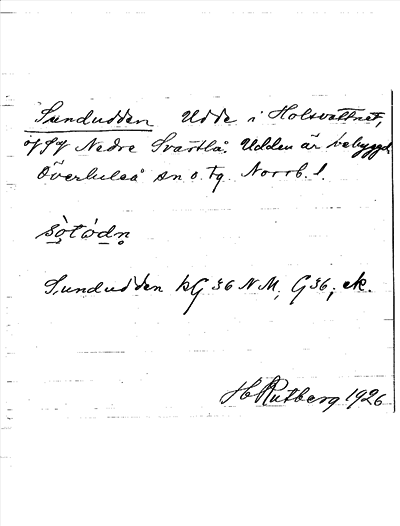 Sundudden Udde i Holsvattnet,
öfSg Nedre Svartlå. Udden är bebyggd.
Överluleå sn o. tg. Norrb. l.
Sundudden kG 36 NM, G36; ek.
H Rutberg 1926